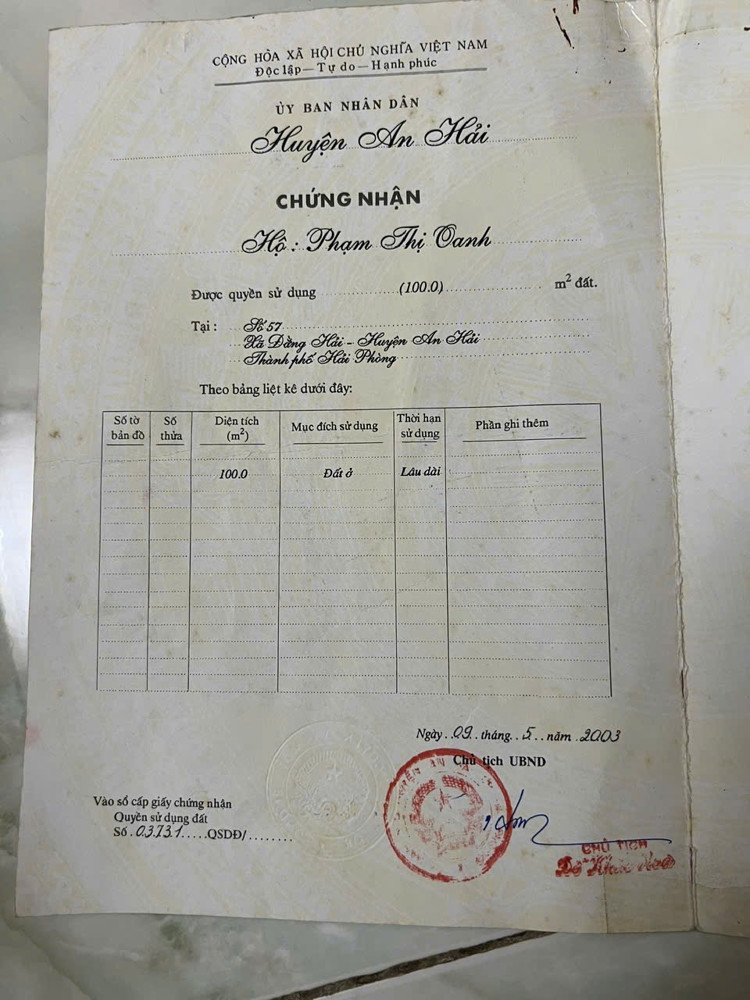 CỘNG HÒA XÃ HỘI CHỦ NGHĨA VIỆT NAM
Độc lập — Tự do — Hạnh phúc
ỦY BAN NHÂN DÂN
Huyện An Hải
CHỨNG NHẬN
Hộ : Phạm Thị Oanh
Được quyền sử dụng (100.0) m² đất.
Tại : Số 57
Xã Đằng Hải - Huyện An Hải
Thành phố Hải Phòng
Theo bảng liệt kê dưới đây:
Số tờ bản đồ Số thửa Diện tích (m²) Mục đích sử dụng Thời hạn sử dụng Phần ghi thêm
100.0 Đất ở Lâu dài
Ngày 09 tháng 5 năm 2003
Chủ tịch UBND
Vào sổ cấp giấy chứng nhận
Quyền sử dụng đất
Số 03731 QSDĐ/
CHỦ TỊCH